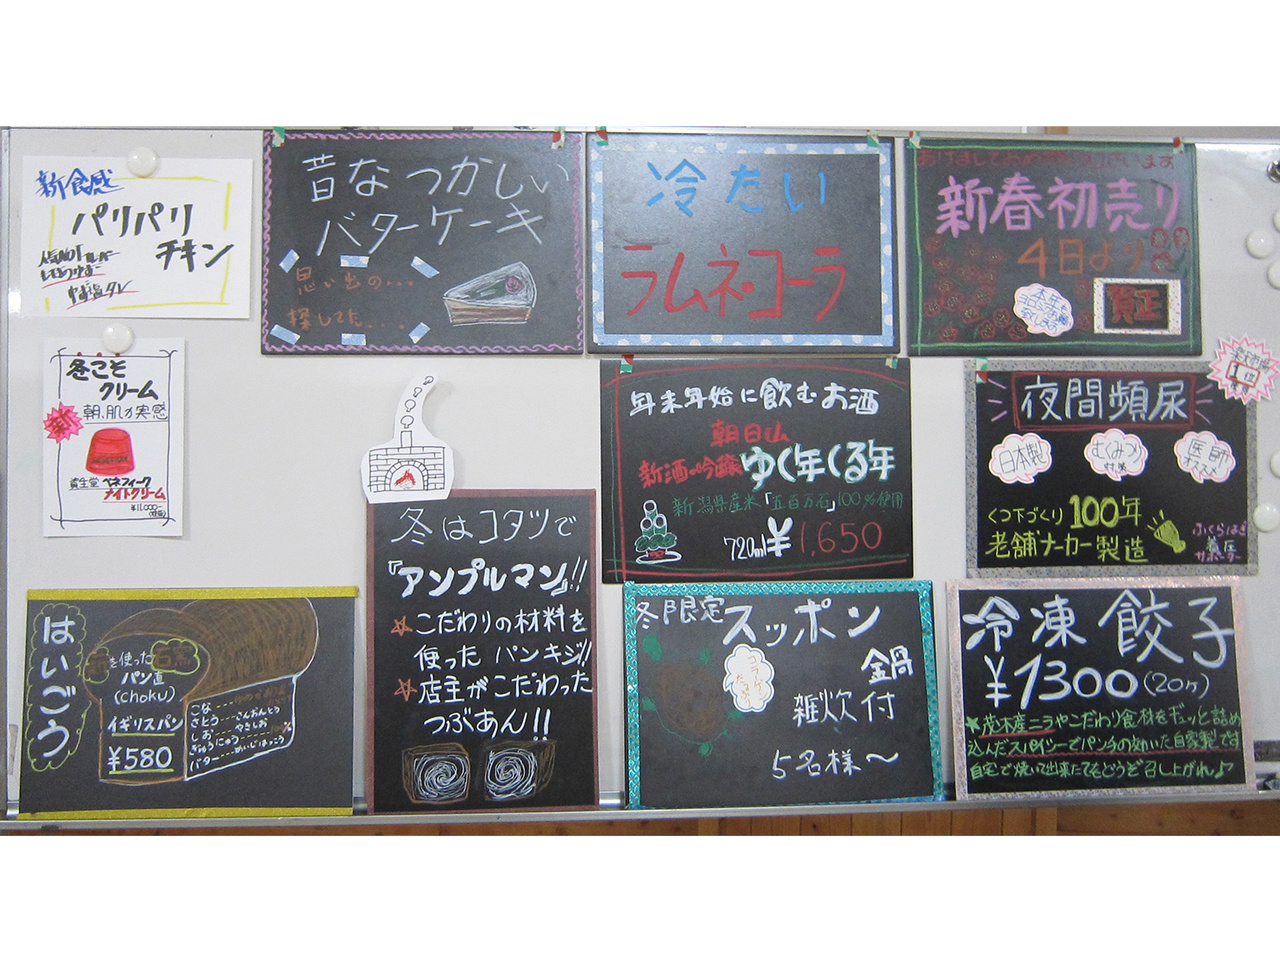 新食感
パリパリ
チキン
昔なつかしい
バターケーキ
思い出の...
探してた....
冷たい
ラムネ・コーラ
新春初売り
4日より
賀正
冬こそ
クリーム
朝、肌が実感
資生堂 ベネフィーク
ナイトクリーム
¥11,000-
冬はコタツで
『アンプルマン』!!
☆こだわりの材料を
使った パンキジ!!
☆店主がこだわった
つぶあん!!
年末年始に飲むお酒
朝日山
新酒・吟醸 ゆく年くる年
新潟県産米「五百万石」100%使用
720ml ¥1,650
1位
夜間頻尿
日本製
むくみ
対策
医師
オススメ
くつ下づくり 100年
老舗メーカー製造
ふくらはぎ
着圧
サポーター
はいごう
を使った
パン直
(choku)
イギリスパン
¥580
こな
さとう
しお
ぎゅうにゅう
バター
冬限定 スッポン
鍋
雑炊付
5名様〜
冷凍餃子
¥1300 (20ヶ)
★茂木産ニラやこだわり食材をギュッと詰め
込んだスパイシーでパンチの効いた自家製です
自宅で焼いて出来たてをどうぞ召し上がれ♪